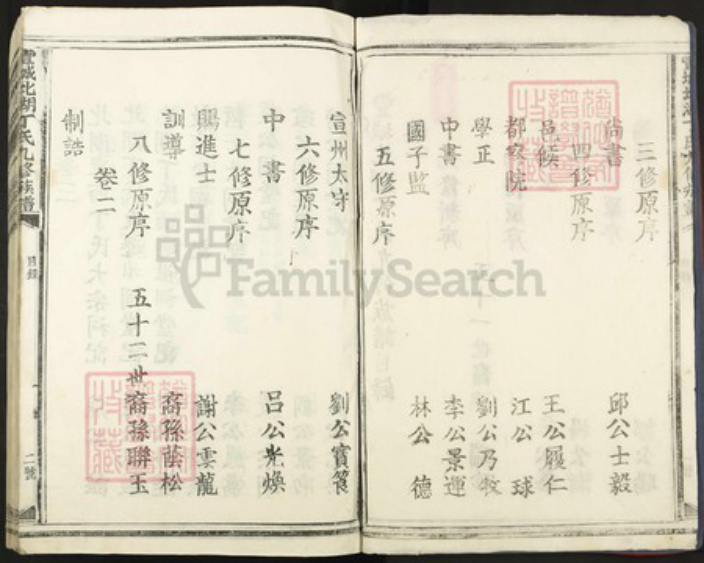 三修原序
尚書 邱公士毅
四修原序
邑候 王公履仁
都察院 江公球
學正 劉公乃牧
中書 李公景運
國子監 林公德
五修原序
宣州太守 劉公賓簑
六修原序
中書 呂公光煥
七修原序
賜進士 謝公雲龍
訓導 裔孫蔭松
八修原序 五十二世裔孫聯玉
卷二
制誥
宣城北湖丁氏九修族譜
目錄
二號
FamilySearch